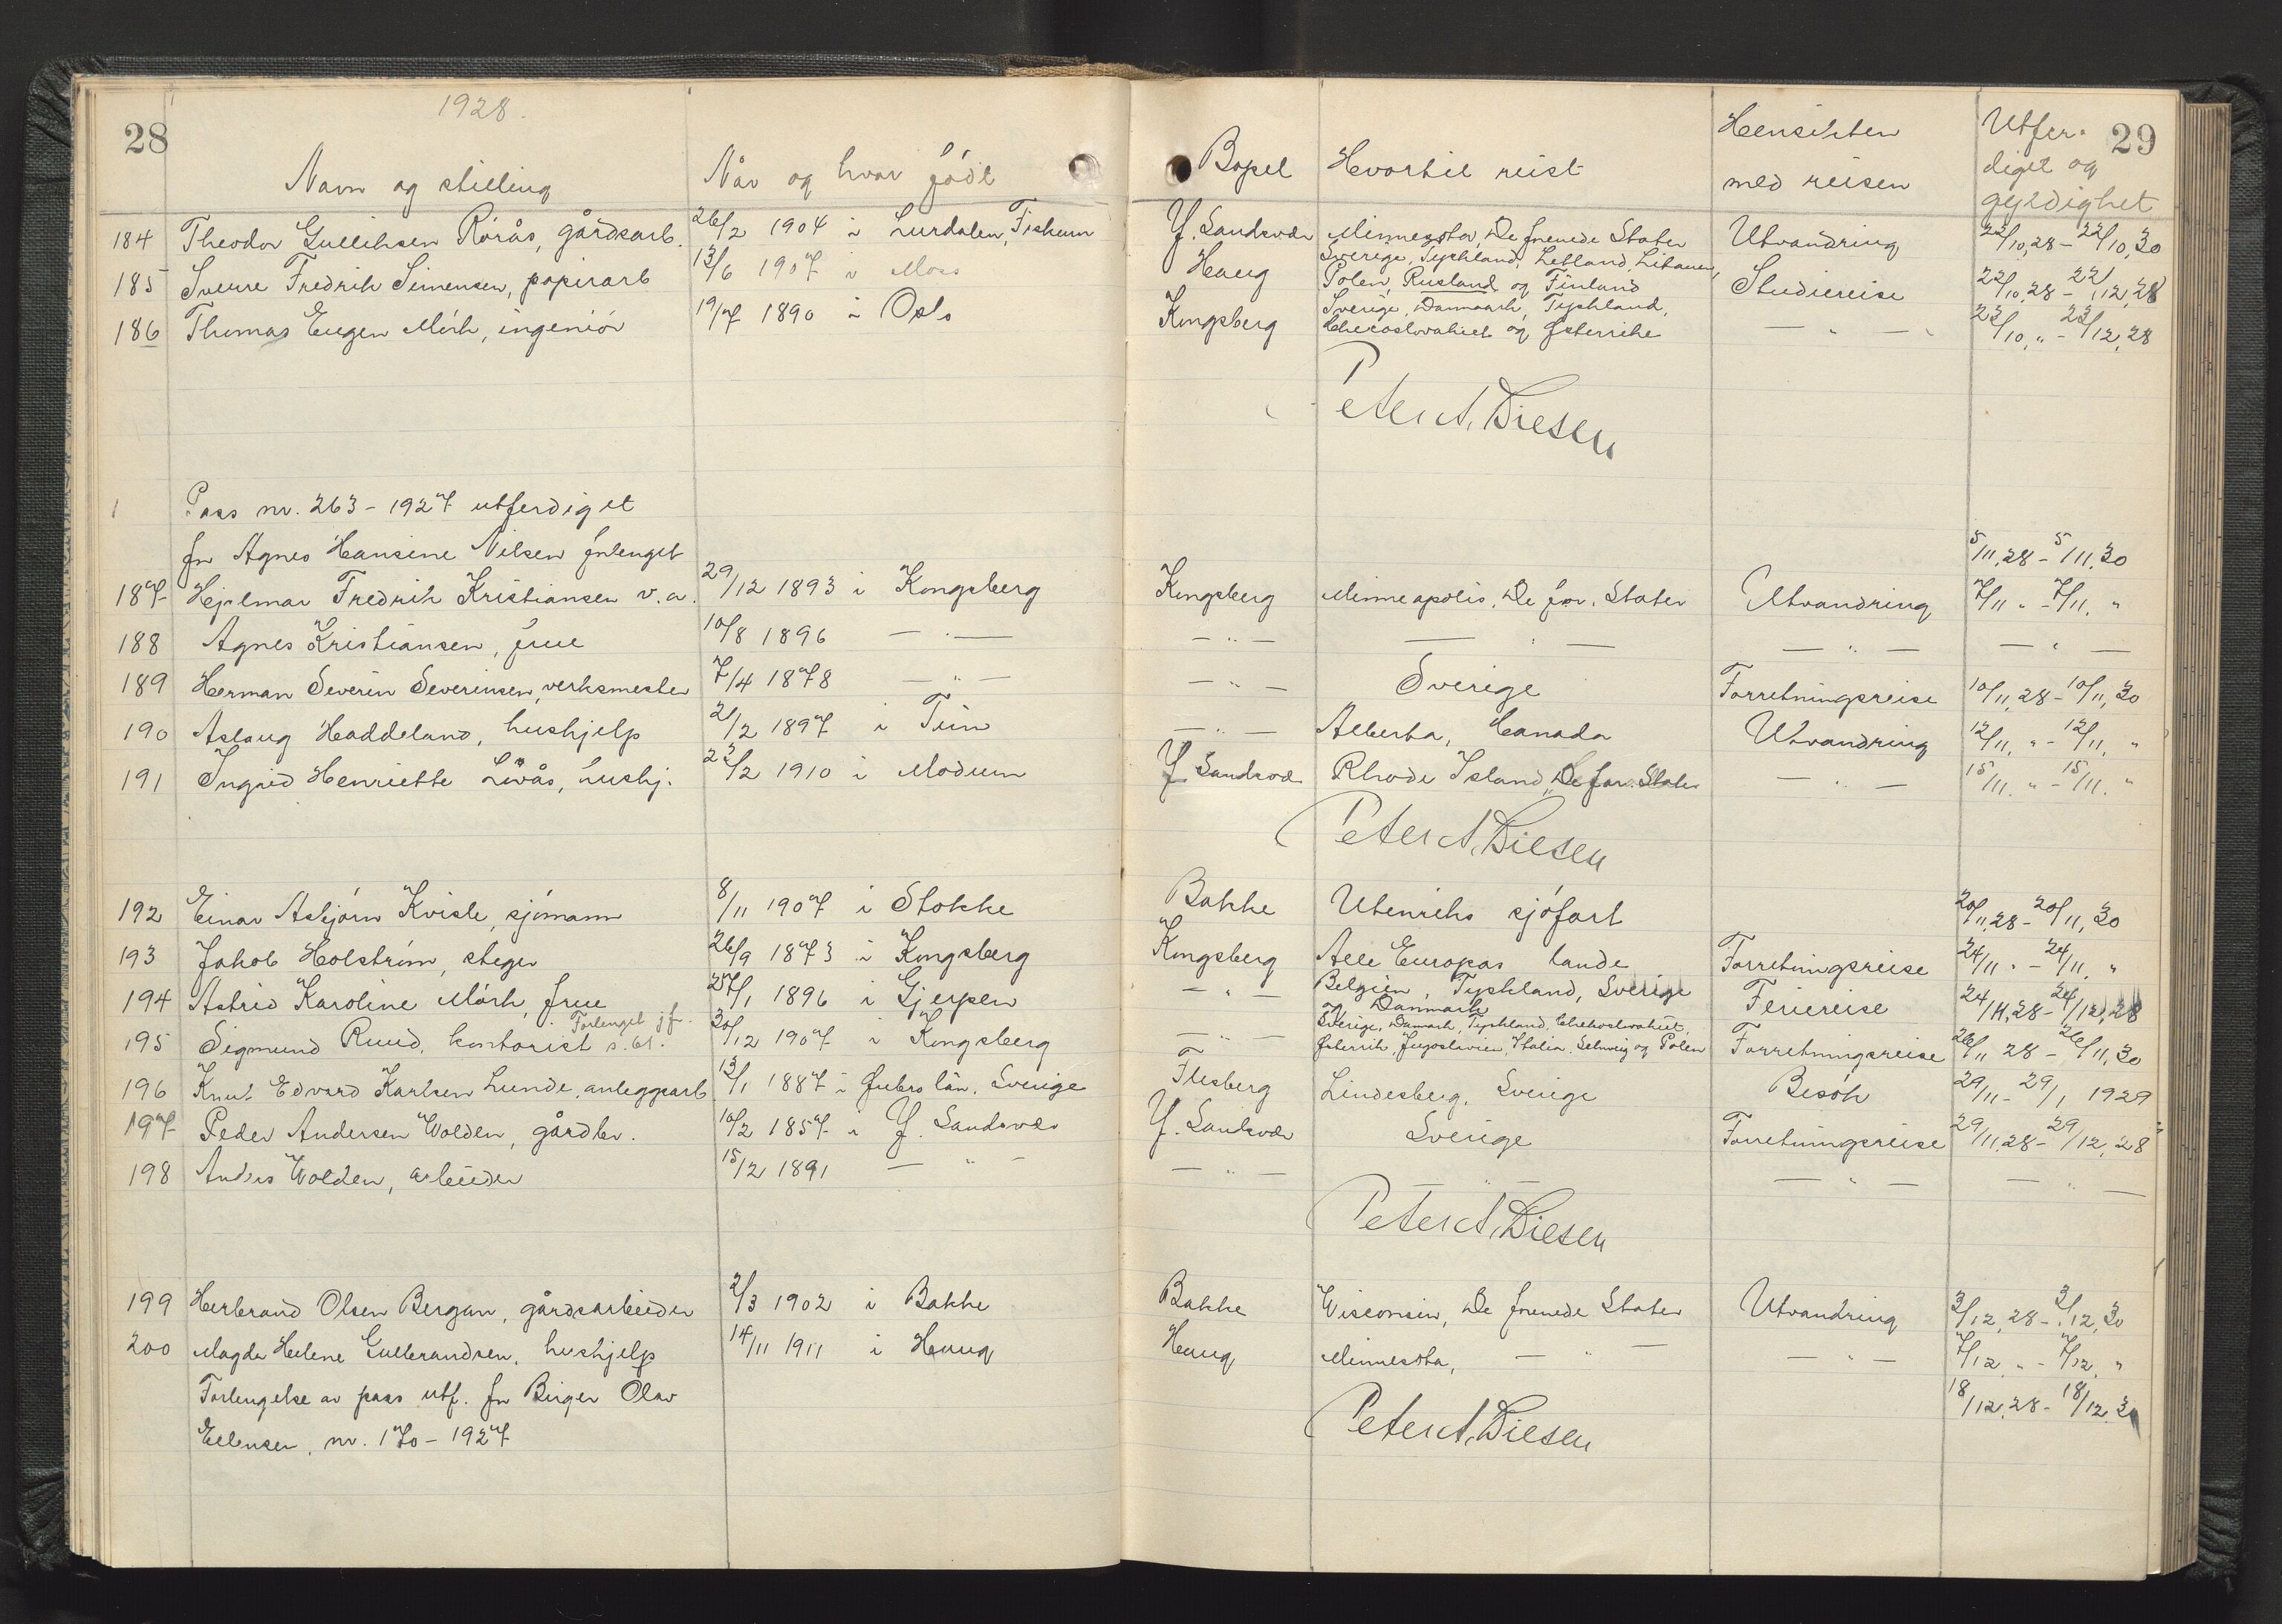 28
1928.
Navn og stilling
Når og hvor födt
Bopel
Hvortil reist
Hensikten med reisen
Utfer-
diget og
gyldighet
29
184 Theodor Gullihsen Rörås, gårdsarb. 26/2 1904 i Lurdalen, Fiskum Y. Sandsvær Minnesota, De forenede Stater Utvandring 22/10,28 - 22/10,30
Sverige, Tyskland, Letland, Litauen,
185 Sverre Fredrik Simensen, papirarb 13/6 1907 i Moss Haug Polen, Rusland og Finland Studiereise 22/10,28 - 22/12,28
Sverige, Danmark, Tyskland,
186 Thomas Eugen Mörk, ingeniör 19/7 1890 i Oslo Kongsberg og Østerrike — " — 23/10, " - 23/12,28
Peter A. Diesen
Pass nr. 263 - 1927 utferdiget
for Agnes Hansine Nilsen forlenget 5/11,28 - 5/11,30
187 Hjalmar Fredrik Kristiansen v.a. 29/12 1893 i Kongsberg Kongsberg Minneapolis, De for. Stater Utvandring 7/11 " - 7/11, "
188 Agnes Kristiansen, frue 10/8 1896 — " — — " — — " — — " — — " —
189 Herman Severin Severinsen, verksmester 7/4 1878 — " — — " — Sverige Forretningsreise 10/11,28 - 10/11,30
190 Aslaug Haddeland, hushjelp 21/2 1897 i Tinn — " — Alberta, Canada Utvandring 12/11, " - 12/11, "
191 Ingrid Henriette Lövås, hushj. 22/2 1910 i Modum Y. Sandsvær Rhode Island, De for. Stater — " — 15/11, " - 15/11, "
Peter A. Diesen
192 Einar Asbjörn Kvisle, sjömann 8/11 1907 i Stokke Bakke Utenriks sjöfart 20/11,28 - 20/11,30
193 Jakob Holström, steger 26/9 1873 i Kongsberg Kongsberg Alle Europas lande Forretningsreise 24/11 " - 24/11, "
Belgien, Tyskland, Sverige
194 Astrid Karoline Mörk, frue 27/1 1896 i Gjerpen — " — og Danmark Feriereise 24/11,28 - 24/12,28
Forlenget jfr. Sverige, Danmark, Tyskland,
195 Sigmund Ruud, kontorist s. 61. 30/12 1907 i Kongsberg — " — Østerrik, Jugoslavien, Italia, Schweiz og Polen Forretningsreise 26/11 28 - 26/11,30
196 Knut Edvard Karlsen Lunde, anleggsarb 13/1 1887 i län, Sverige Flesberg Lindesberg, Sverige Besök 29/11 - 29/1 1929
197 Peder Andersen Wolden, gårdbr. 10/2 1857 i Y. Sandsvær Y. Sandsvær Sverige Forretningsreise 29/11,28 - 29/12,28
198 Anders Wolden, arbeider 15/2 1891 — " — — " — — " — — " — — " —
Peter A. Diesen
199 Herbrand Olsen Bergan, gårdsarbeider 2/3 1902 i Bakke Bakke Wisconsin, De forenede Stater Utvandring 3/12,28 - 3/12,30
200 Magda Helene Gulbrandsen, hushjelp 14/11 1911 i Haug Haug Minnesota, — " — — " — 7/12, " - 7/12, "
Forlengelse av pass utf. for Birger Olav 18/12,28 - 18/12,30
Ellensen, nr. 170 - 1927
Peter A. Diesen